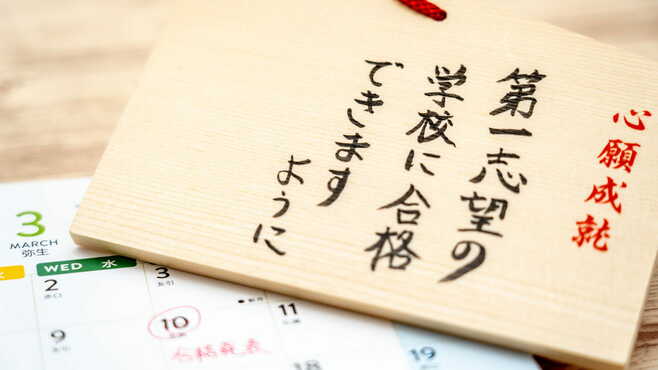 心願成就
第一志望の
学校に合格
できます
ように
3
MARCH
弥生
WED 水
2
3
赤口
友引
9
10
11
友引
合格発表
18
19